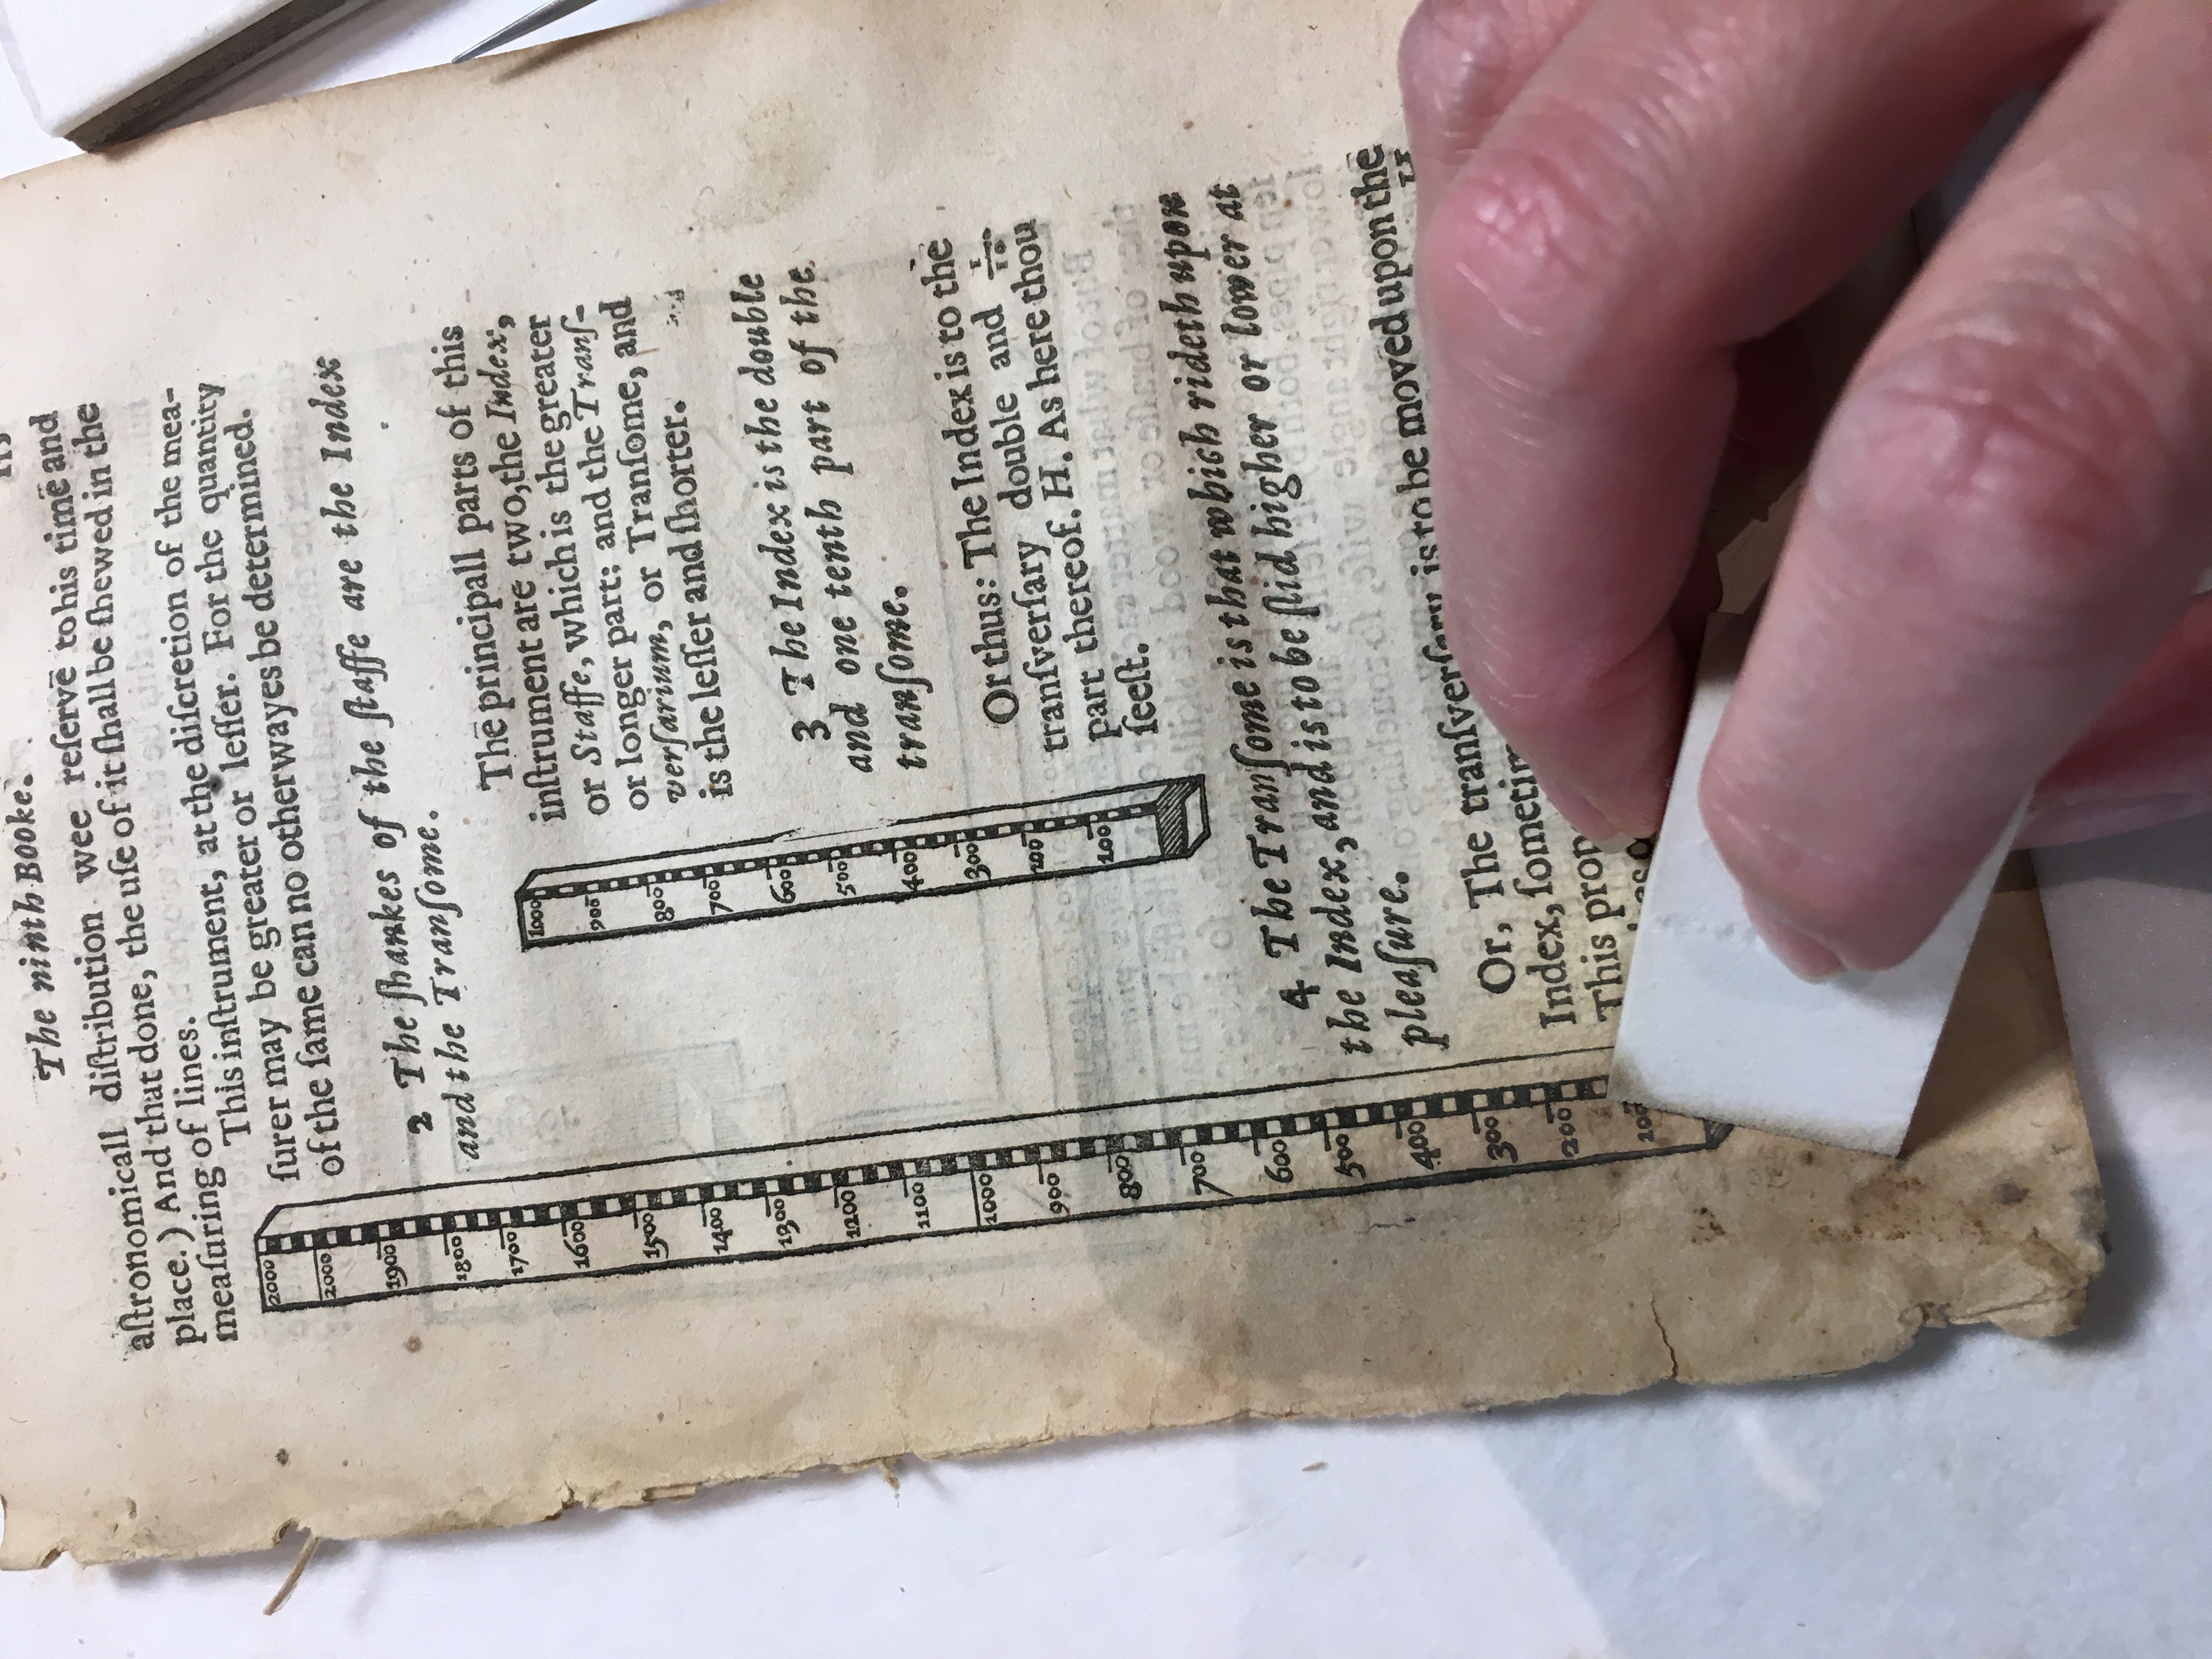 The ninth Booke.
aſtronomicall diſtribution wee reſerve to his time and
place.) And that done, the uſe of it ſhall be ſhewed in the
meaſuring of lines.
This inſtrument, at the diſcretion of the mea-
ſurer may be greater or leſſer. For the quantity
of the ſame can no otherwayes be determined.
2 The ſhankes of the ſtaffe are the Index
and the Tranſome.
The principall parts of this
inſtrument are two, the Index,
or Staffe, which is the greater
or longer part: and the Tranſ-
verſarium, or Tranſome, and
is the leſſer and ſhorter.
3 The Index is the double
and one tenth part of the
tranſome.
Or thus: The Index is to the
tranſverſary double and 1/10
part thereof. H. As here thou
ſeeſt.
1000
900
800
700
600
500
400
300
200
100
2000
2000
1900
1800
1700
1600
1500
1400
1300
1200
1100
1000
900
800
700
600
500
400
300
200
100
4 The Tranſome is that which rideth upon
the Index, and is to be ſlid higher or lower at
pleaſure.
Or, The tranſverſary is to be moved upon the
Index, ſometim
This prop